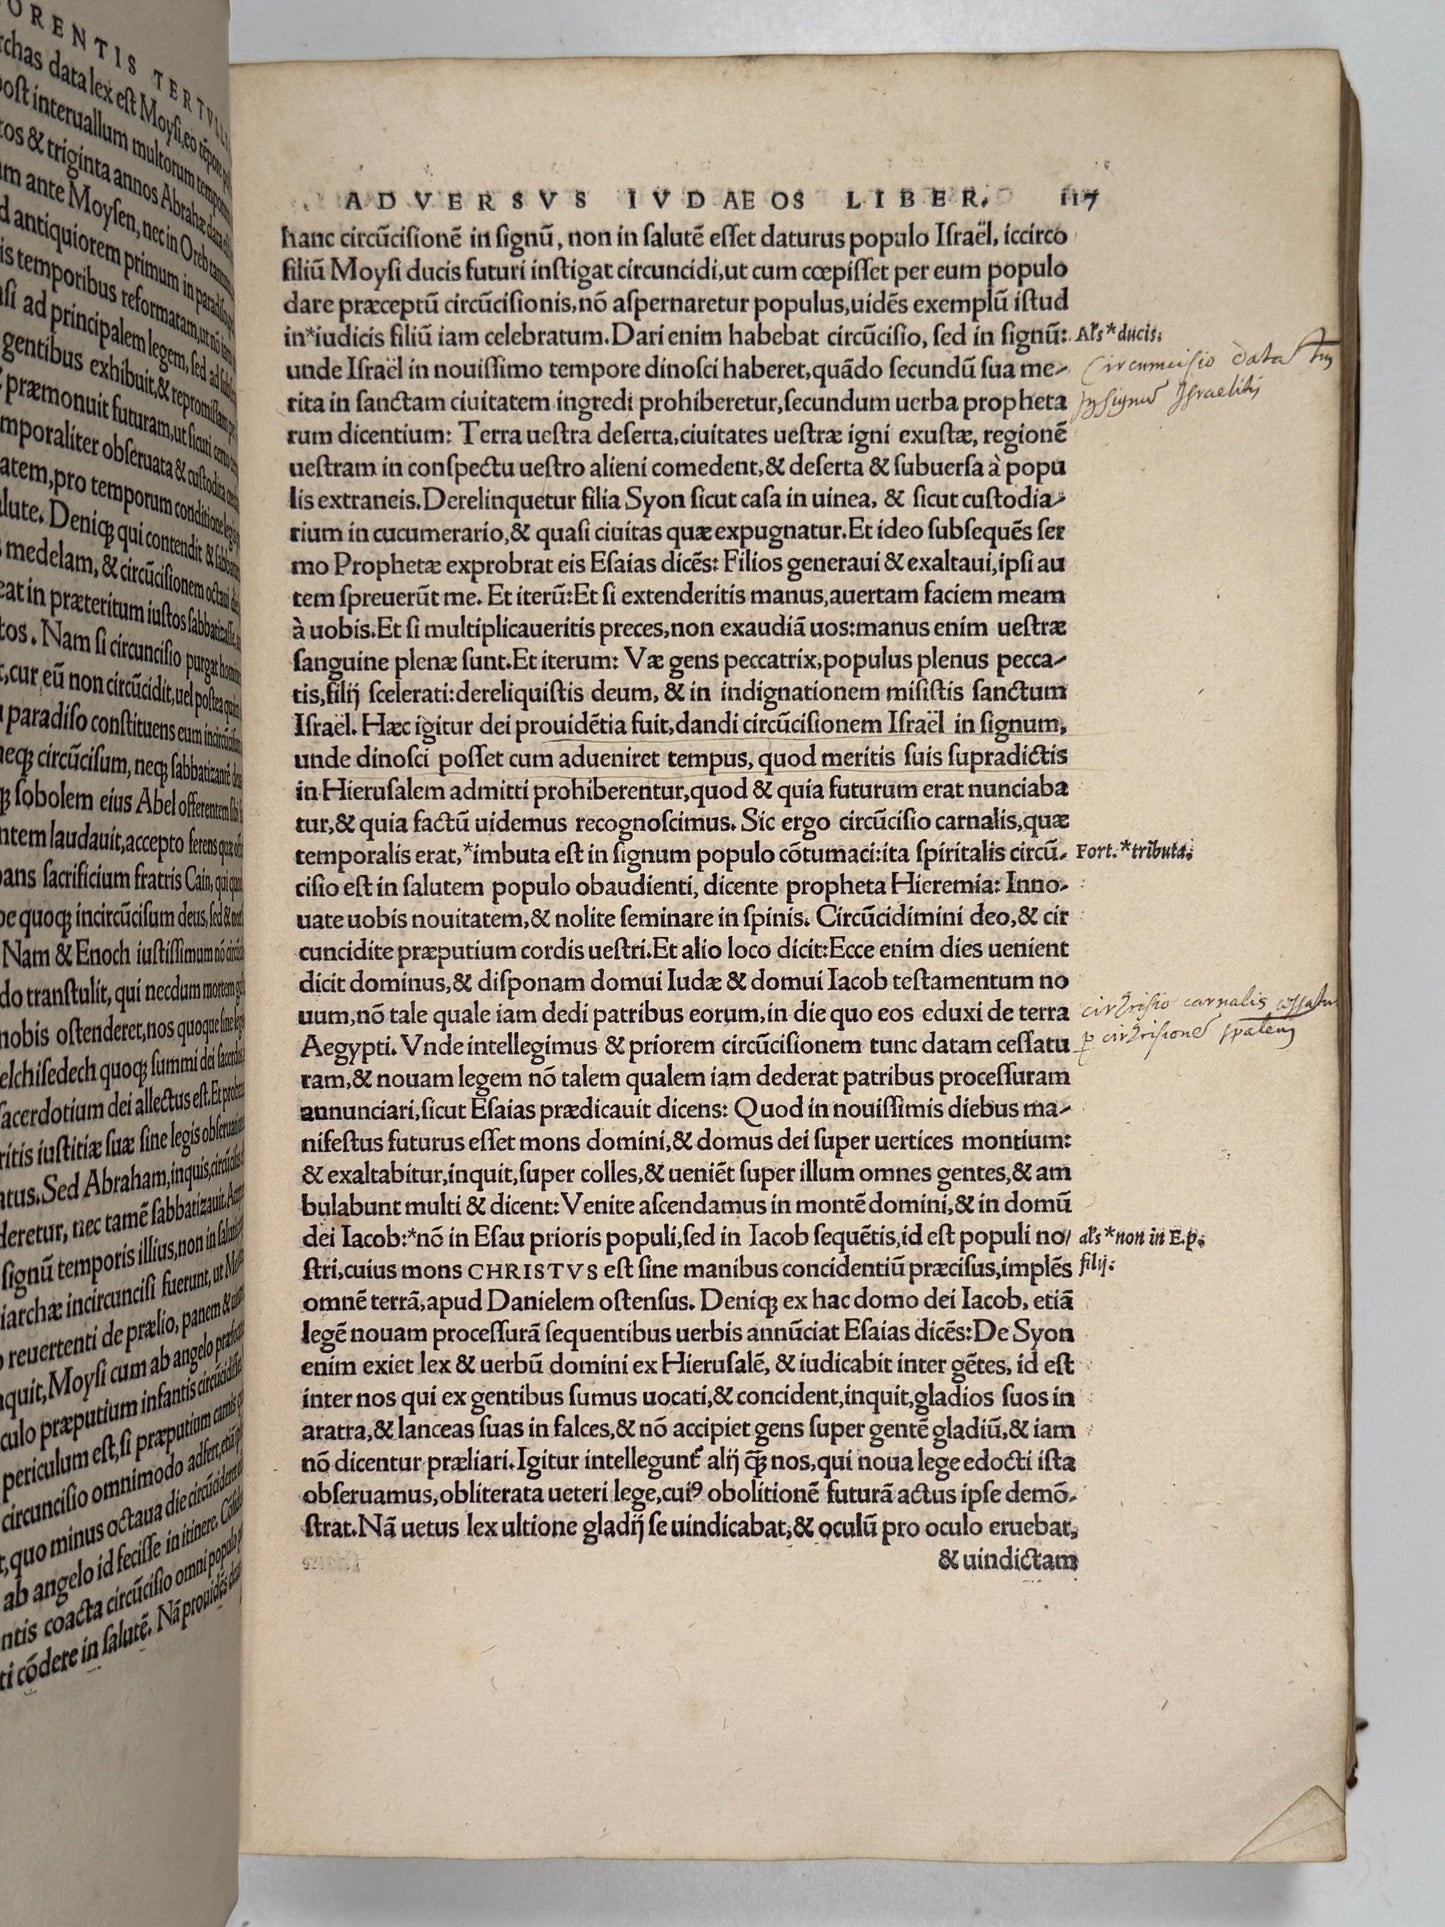 ORENTIS TERTVLLI
rchas data lex est Moysi, eo tēpore
post interuallum multorum temporum
tos & triginta annos Abrahæ data
am ante Moysen, nec in Oreb tantum
d antiquiorem primum in paradiso
is temporibus reformatam, ut nō
si ad principalem legem, sed ad
gentibus exhibuit, & repromissam
præmonuit futuram, ut sicuti certo
mporaliter obseruata & custodita
atem, pro temporum conditione
lute. Deniqꝫ qui contendit & sabbatum
medelam, & circūcisionem octaui
eat in præteritum iustos sabbatizasse,
tos. Nam si circuncisio purgat
t, cur eū non circūcidit, uel postea
paradiso constituens eum
neqꝫ circūcisum, neqꝫ sabbatizantē
ꝫ sobolem eius Abel offerentem sibi
ntem laudauit, accepto ferens quæ
ans sacrificium fratris Cain, qui
oe quoqꝫ incircūcisum deus, sed &
Nam & Enoch iustissimum nō
do transtulit, qui necdum mortem
nobis ostenderet, nos quoque sine
elchisedech quoqꝫ summi dei
sacerdotium dei allectus est. Et
ritis iustitiæ suæ sine legis
atus. Sed Abraham, inquis,
deretur, nec tamē sabbatizauit.
signū temporis illius, non in
iarchæ incircuncisi fuerunt, ut
o reuertenti de prælio, panem &
nquit, Moysi cum ab angelo
culo præputium infantis
periculum est, si præputium carnis
circuncisio omnimodo adfert,
t, quo minus octaua die
ab angelo id fecisse in itinere.
ntis coacta circūcisio omni populo
ti cōdere in salutē. Nā prouidēs
ADVERSVS IVDAEOS LIBER. 117
hanc circūcisionē in signū, non in salutē esset daturus populo Israël, iccirco
filiū Moysi ducis futuri instigat circuncidi, ut cum cœpisset per eum populo
dare præceptū circūcisionis, nō aspernaretur populus, uidēs exemplū istud
in*iudicis filiū iam celebratum. Dari enim habebat circūcisio, sed in signū:
Al's *ducis.
unde Israël in nouissimo tempore dinosci haberet, quādo secundū sua me-
Circumcisio data
rita in sanctam ciuitatem ingredi prohiberetur, secundum uerba propheta
signū Israelitis
rum dicentium: Terra uestra deserta, ciuitates uestræ igni exustæ, regionē
uestram in conspectu uestro alieni comedent, & deserta & subuersa à popu
lis extraneis. Derelinquetur filia Syon sicut casa in uinea, & sicut custodia-
rium in cucumerario, & quasi ciuitas quæ expugnatur. Et ideo subsequēs ser
mo Prophetæ exprobrat eis Esaias dicēs: Filios generaui & exaltaui, ipsi au
tem spreuerūt me. Et iterū: Et si extenderitis manus, auertam faciem meam
à uobis. Et si multiplicaueritis preces, non exaudiā uos: manus enim uestræ
sanguine plenæ sunt. Et iterum: Væ gens peccatrix, populus plenus pecca-
tis, filij scelerati: dereliquistis deum, & in indignationem misistis sanctum
Israël. Hæc igitur dei prouidētia fuit, dandi circūcisionem Israël in signum,
unde dinosci posset cum adueniret tempus, quod meritis suis supradictis
in Hierusalem admitti prohiberentur, quod & quia futurum erat nunciaba
tur, & quia factū uidemus recognoscimus. Sic ergo circūcisio carnalis, quæ
temporalis erat, *imbuta est in signum populo cōtumaci: ita spiritalis circū-
Fort. *tributa.
cisio est in salutem populo obaudienti, dicente propheta Hieremia: Inno-
uate uobis nouitatem, & nolite seminare in spinis. Circūcidimini deo, & cir
cuncidite præputium cordis uestri. Et alio loco dicit: Ecce enim dies uenient
dicit dominus, & disponam domui Iudæ & domui Iacob testamentum no
uum, nō tale quale iam dedi patribus eorum, in die quo eos eduxi de terra
carnalis
Aegypti. Vnde intellegimus & priorem circūcisionem tunc datam cessatu
ram, & nouam legem nō talem qualem iam dederat patribus processuram
annunciari, sicut Esaias prædicauit dicens: Quod in nouissimis diebus ma-
nifestus futurus esset mons domini, & domus dei super uertices montium:
& exaltabitur, inquit, super colles, & ueniēt super illum omnes gentes, & am
bulabunt multi & dicent: Venite ascendamus in montē domini, & in domū
dei Iacob: *nō in Esau prioris populi, sed in Iacob sequētis, id est populi no/
al's *non in E. p.
stri, cuius mons CHRISTVS est sine manibus concidentiū præcisus, implēs
filij:
omnē terrā, apud Danielem ostensus. Deniqꝫ ex hac domo dei Iacob, etiā
legē nouam processurā sequentibus uerbis annūciat Esaias dicēs: De Syon
enim exiet lex & uerbū domini ex Hierusalē, & iudicabit inter gētes, id est
inter nos qui ex gentibus sumus uocati, & concident, inquit, gladios suos in
aratra, & lanceas suas in falces, & nō accipiet gens super gentē gladiū, & iam
nō dicentur præliari. Igitur intellegunt̄ alij qꝫ̄ nos, qui noua lege edocti ista
obseruamus, obliterata ueteri lege, cuiꝰ obolitionē futurā actus ipse demō-
strat. Nā uetus lex ultione gladij se uindicabat, & oculū pro oculo eruebat,
& uindictam